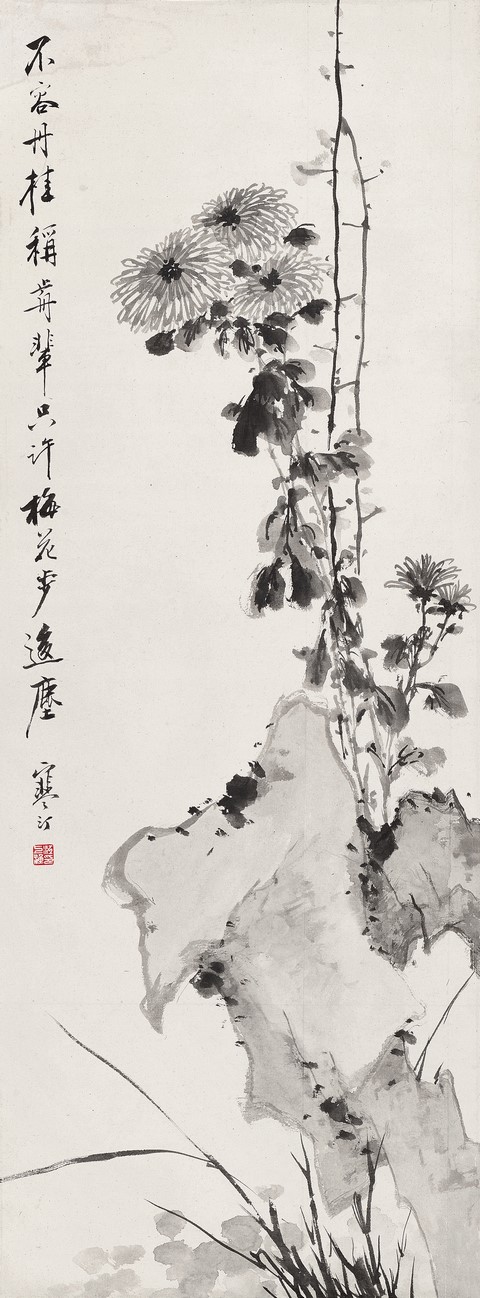 不容丹桂稱歬輩只許梅花步後塵 寒汀